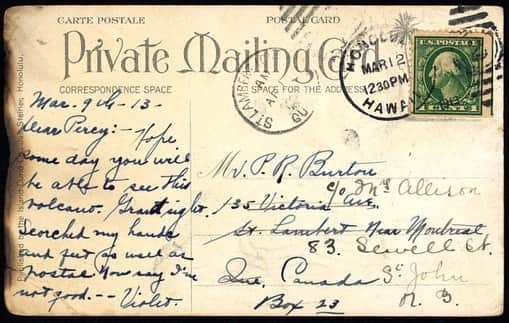 CARTE POSTALE
POSTAL CARD
Private Mailing Card
CORRESPONDENCE SPACE
SPACE FOR THE ADDRESS
HONOLU
MAR 12
12 30 PM
HAWAII
U.S. POSTAGE
ST LAMBERT
QUE
Mar. 9th - 13 -
Dear Percy:- Hope
some day you will
be able to see this
volcano. Grand sight.
Scorched my hands
and feet as well as
postal. Now say I'm
not good. -- Violet.
Mr. P. R. Burton
c/o Mrs Allison
135 Victoria Ave.
St. Lambert Near Montreal
83. Sewell St.
Que, Canada
St. John
N. B.
Box 23
Steiner, Honolulu,